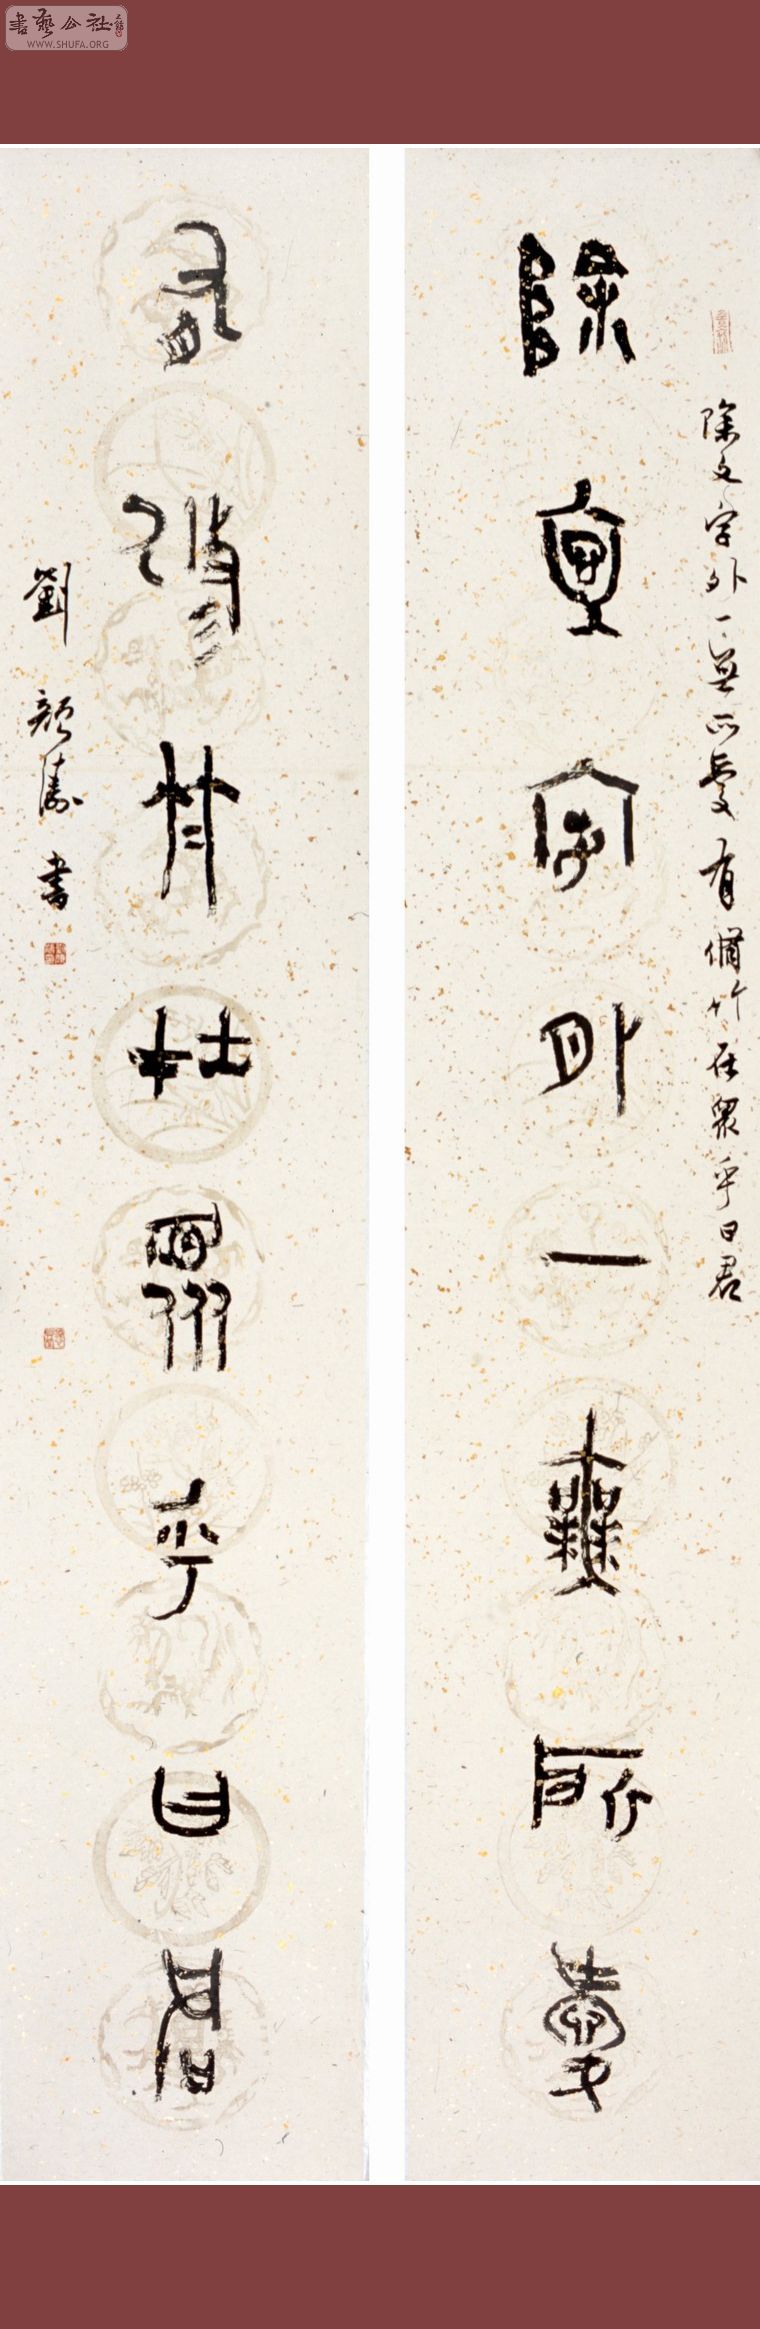 書藝公社
WWW.SHUFA.ORG
除文字外一無所愛有脩竹在眾乎曰君
除文字外一無所愛
有脩竹在眾乎曰君
劉顏濤書